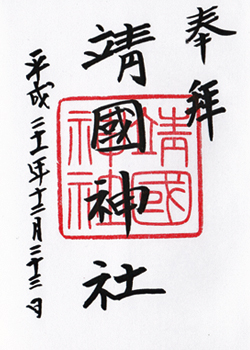 奉拝
靖國神社
平成二十一年十二月二十三日
靖國
神社